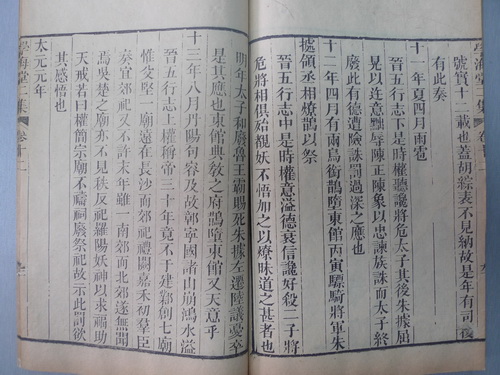 學海堂二集
卷十二
號實十二載也蓋胡綜表不見納故是年有司復
有此奏
十一年夏四月雨雹
晉五行志中是時權聽讒將危太子其後朱據屈
晃以迕意黜辱陳正陳象以忠諫族誅而太子終
廢此有德遭險誅罰過深之應也
十二年四月有兩烏銜鵲墮東館丙寅驃騎將軍朱
據領丞相燎鵲以祭
晉五行志中是時權意溢德衰信讒好殺二子將
危將相俱殆覩妖不悟加之以燎昧道之甚者也
明年太子和廢魯王霸賜死朱據左遷陸議憂卒
是其應也東館典教之府鵲墮東館又天意乎
十三年八月丹陽句容及故鄣寧國諸山崩鴻水溢
晉五行志上權稱帝三十年竟不于建鄴創七廟
惟父堅一廟遠在長沙而郊祀禮闕嘉禾初羣臣
奏宜郊祀又不許末年雖一南郊而北郊遂無聞
焉吳楚之廟亦不見秩反祀羅陽妖神以求福助
天戒若曰權簡宗廟不禱祠廢祭祀故示此罰欲
其感悟也
太元元年
學海堂二集
卷十二